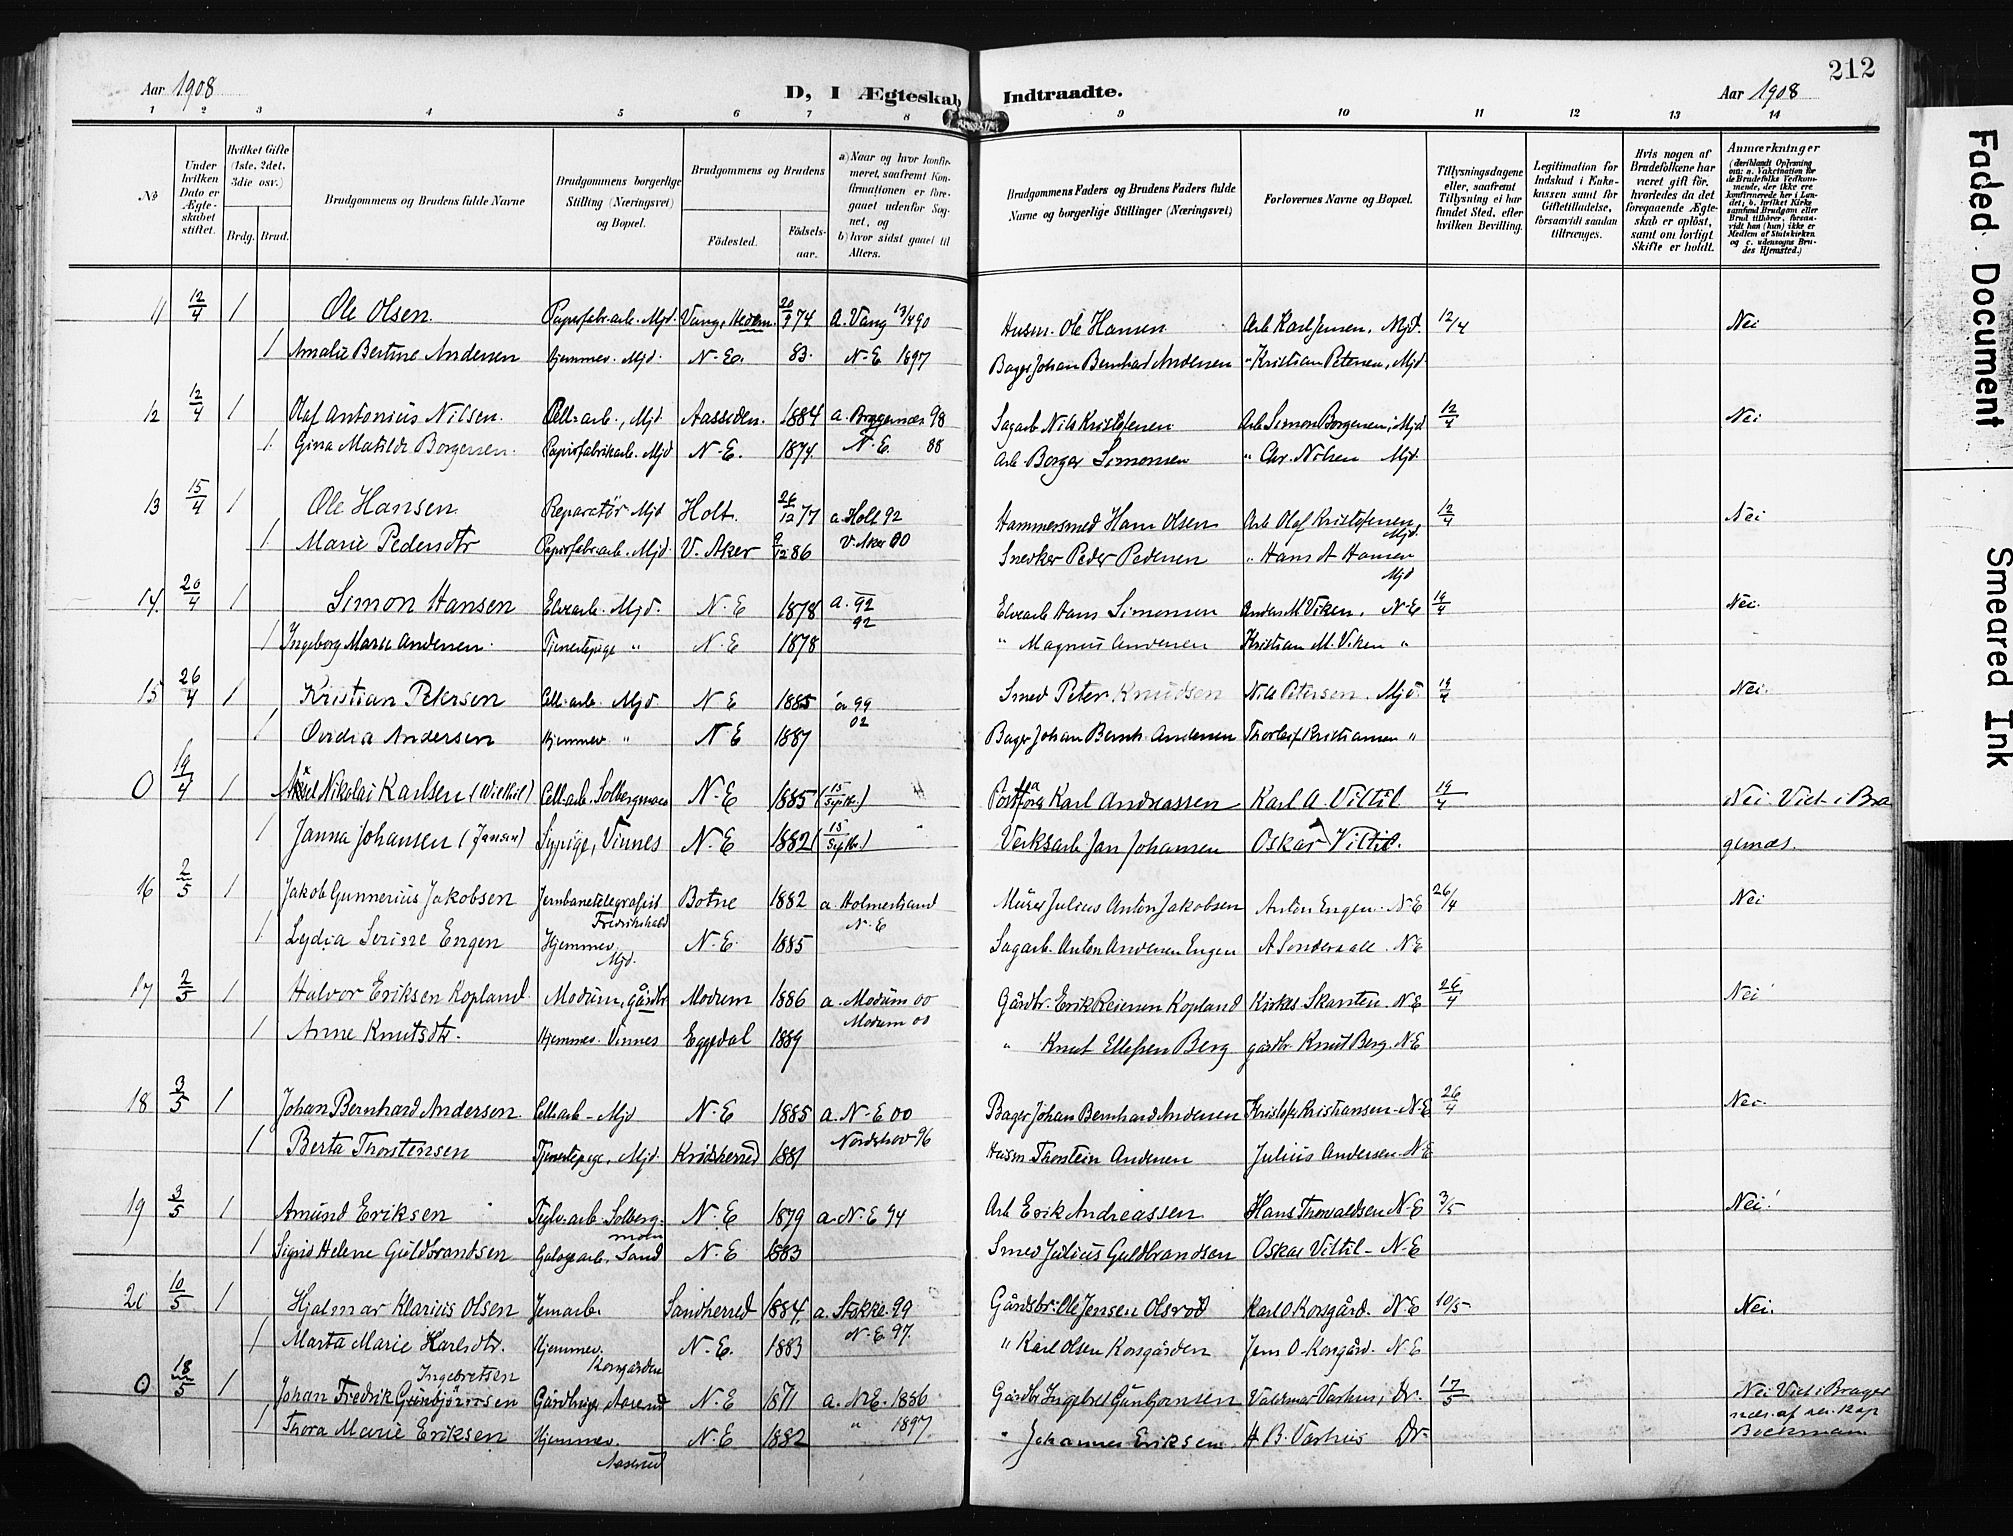 Aar 1908
D, I Ægteskab Indtraadte.
Aar 1908
212
1 2 3 4 5 6 7 8 9 10 11 12 13 14
No
Under hvilken Dato er Ægteskabet stiftet.
Hvilket Gifte (1ste, 2det, 3die osv.)
Brdg. Brud.
Brudgommens og Brudens fulde Navne
Brudgommens borgerlige Stilling (Næringsvei) og Bopæl.
Brudgommens og Brudens
Fødested.
Fødselsaar.
a) Naar og hvor konfirmeret, saafremt Konfirmationen er foregaaet udenfor Sognet, og
b) hvor sidst gaaet til Alters.
Brudgommens Faders og Brudens Faders fulde Navne og borgerlige Stillinger (Næringsvei)
Forlovernes Navne og Bopæl.
Tillysningsdagene eller, saafremt Tillysning ei har fundet Sted, efter hvilken Bevilling.
Legitimation for Indskud i Enkekassen samt for Giftetilladelse, forsaavidt saadan tiltrænges.
Hvis nogen af Brudefolkene har været gift før, hvorledes da det foregaaende Ægteskab er opløst, samt om lovligt Skifte er holdt.
Anmærkninger (deriblandt Oplysning om: a. Vakcination for de Brudefolks Vedkommende, der ikke ere konfirmerede her i Landet, b. hvilket Kirkesamfund Brudgom eller Brud tilhører, forsaavidt han (hun) ikke er Medlem af Statskirken og c. udensogns Brudes Hjemsted.)
11 12/4 1 Ole Olsen. Papirfabr.arb. Mjd. Vang, Hedem. 20/9 74 a. Vang 13/4 90 Husm. Ole Hansen Arb Karl Jensen, Mjd. 12/4 Nei
1 Amalie Bertine Andersen Hjemmev. Mjd. N-E. 83. N-E 1897 Bager Johan Bernhard Andersen " Kristian Petersen, Mjd
12 12/4 1 Olaf Antonius Nilsen. Cell.arb., Mjd Aassiden. 1884 a. Bragernæs 98 Sagarb Nils Kristofersen Arb Simon Borgersen, Mjd 12/4 Nei
1 Gina Matilde Borgersen. Papirfabrikarb. Mjd N-E. 1874 N-E. 88 Arb Borger Simonsen " Chr. Nilsen Mjd.
13 15/4 1 Ole Hansen. Reparatør Mjd Holt. 26/12 77 a. Holt 92 Hammersmed Hans Olsen Arb Olaf Kristofersen, Mjd. 12/4 Nei
1 Marie Pedersdtr Papirfabr.arb. Mjd V. Aker 9/12 86 V. Aker 00 Snedker Peder Pedersen " Hans A Hansen Mjd
14. 20/4 1 Simon Hansen Elvearb. Mjd. N-E 1878 a. 92 Elvearb Hans Simonsen Anders M. Viken. N-E 19/4 Nei.
1 Ingeborg Marie Andersen. Tjenestepige " N-E 1878 92 " Magnus Andersen Kristian M. Viken "
15 26/4 1 Kristian Petersen Cell.arb. Mjd. N E 1885 a 99 Smed Peter Knudsen Nils Petersen. Mjd. 19/4 Nei.
1 Ovidia Andersen Hjemmev " N E 1887 02 Bager Johan Bernh. Andersen Thorleif Kristiansen "
0 19/4 1 Aksel Nikolai Karlsen (Wiltil) Cell.arb. Solbergmoen N-E 1885 (15/Septbr.) Karl Andreassen Karl A. Viltil 19/4 Nei Viet i Bra
1 Janna Johansen (Jansen) Sypige, Vinnes N-E 1882 (15/Septbr.) Verksarb Jan Johansen Oskar Viltil. gernæs.
16 2/5 1 Jakob Gunnerius Jakobsen Jernbanetelegrafist Fredrikshald Botne 1882 a. Holmestrand Murer Julius Anton Jakobsen Anton Engen. N-E 26/4 Nei
1 Lydia Serine Engen Hjemmev. Mjd. N-E. 1885 N-E Sagarb. Anton Andersen Engen A Sonderaall. N-E
17 2/5 1 Halvor Eriksen Kopland. Modum, gårdbr. Modum 1886 a. Modum 00 Gårdbr. Erik Reiersen Kopland Kirkes. Skarsten. N-E 26/4 Nei!
1 Anne Knutsdtr. Hjemmev. Vinnes Eggedal 1889 Modum 00 " Knut Ellefsen Berg gårdbr. Knut Berg. N-E
18 3/5 1 Johan Bernhard Andersen. Cell.arb - Mjd N-E 1885 a. N-E 00 Bager Johan Bernhard Andersen Kristofer Kristiansen. N-E 26/4 Nei.
1 Berta Thorstensen Tjenestepige, Mjd. Krødsherred 1881 Norderhov 96 Husm Thorstein Andersen Julius Andersen. N-E
19 3/5 1 Amund Eriksen Teglv.arb. Solbergmoen N-E 1879 a. N-E 94 Arb Erik Andreassen Hans Thorvaldsen N-E 3/5 Nei!
1 Sigrid Helene Guldbrandsen Galogearb. Sand N-E 1883 Smed Julius Guldbrandsen Oskar Viltil - N-E
20 10/5 1 Hjalmar Klarius Olsen Jernarb. Sandherred 1884. a. Stokke. 99 Gårdsbr. Ole Jensen Olsrød Karl O Korsgård. N-E 10/5 Nei.
1 Marta Marie Karlsdtr. Hjemmev. Korsgården N-E. 1883 N-E 97. " Karl Olsen Korsgården Jens O. Korsgård. N E
0 18/5 1 Johan Fredrik Ingebretsen Gunbjörnsen Gårdbruger, Aaserud N-E 1871 a. N-E. 1886 Gårdbr. Ingebret Gunbjørnsen Valdemar Varhus, Dr. 17/5 Nei Viet i Brager
1 Thora Marie Eriksen Hjemmev. Aaserud N-E 1882 " 1897 " Johannes Eriksen H. B. Varhus Dr- næs. af res. kap Bockman
Faded Document
Smeared Ink